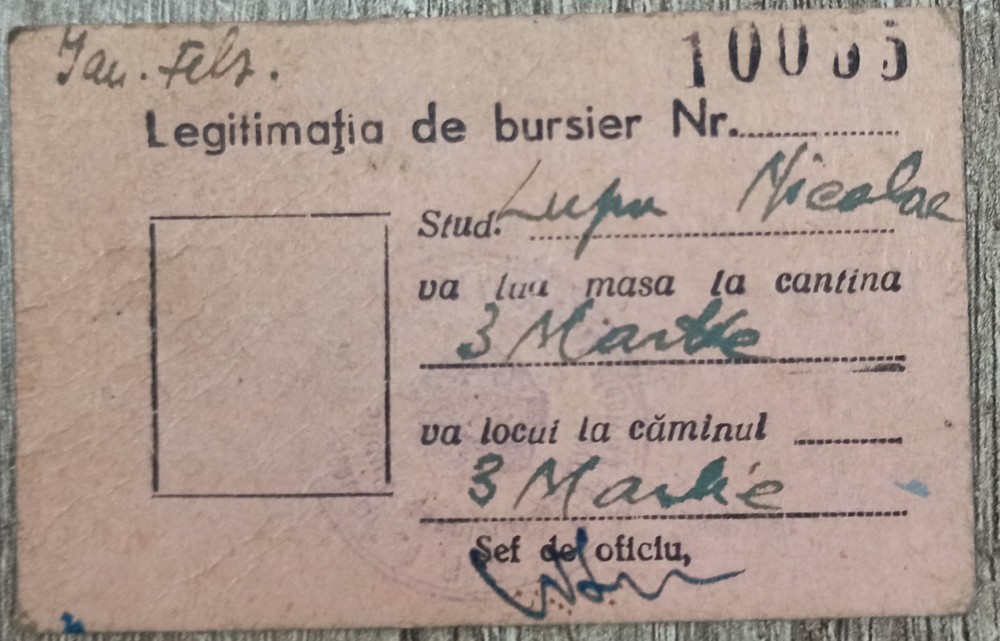 Legitimaţia de bursier Nr.
Stud. Lupu Nicolae
va lua masa la cantina
3 Martie
va locui la căminul
3 Martie
Şef de oficiu,